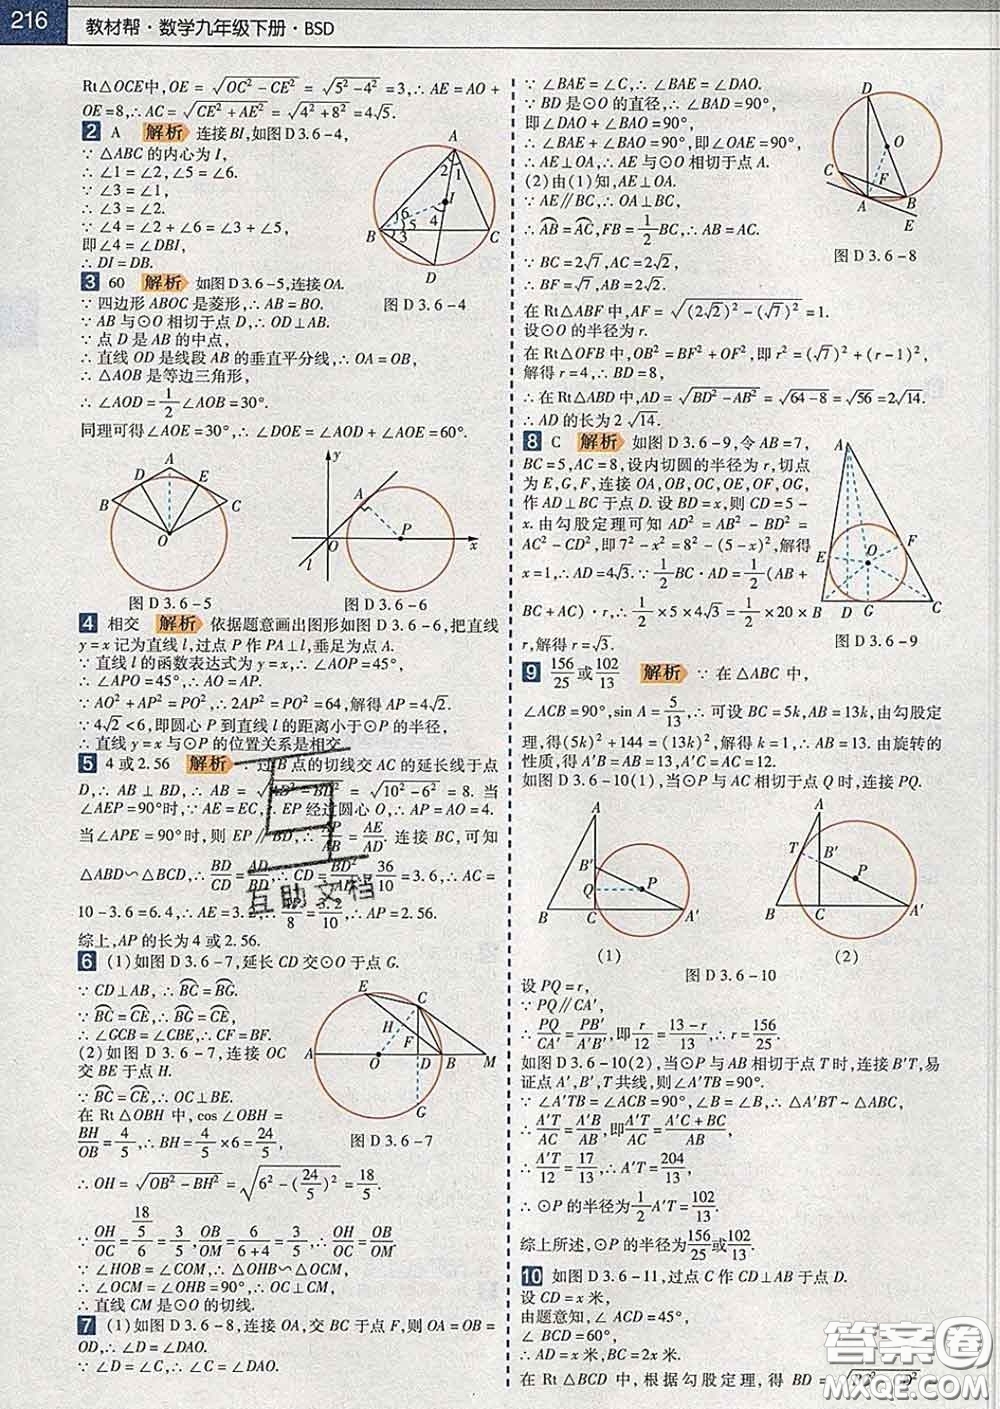 216 教材帮·数学九年级下册·BSD
Rt△OCE中,OE = √(OC² − CE²) = √(5² − 4²) = 3,∴ AE = AO +
OE = 8,∴ AC = √(CE² + AE²) = √(4² + 8²) = 4√5.
2 A 解析 连接BI,如图 D 3.6-4,
∵ △ABC 的内心为 I,
∴ ∠1 = ∠2,∠5 = ∠6.
∵ ∠3 = ∠1,
∴ ∠3 = ∠2.
∵ ∠4 = ∠2 + ∠6 = ∠3 + ∠5,
即∠4 = ∠DBI,
∴ DI = DB.
A
2 1
I
6
5
4
3
B
C
D
图 D 3.6-4
3 60 解析 如图 D 3.6-5,连接OA.
∵ 四边形 ABOC 是菱形,∴ AB = BO.
∵ AB 与⊙O 相切于点 D,∴ OD⊥AB.
∵ 点 D 是 AB 的中点,
∴ 直线 OD 是线段 AB 的垂直平分线,∴ OA = OB,
∴ △AOB 是等边三角形,
∴ ∠AOD = 1/2 ∠AOB = 30°.
同理可得∠AOE = 30°,∴ ∠DOE = ∠AOD + ∠AOE = 60°.
A
D E
B C
O
图 D 3.6-5
y
A
O P x
l
图 D 3.6-6
4 相交 解析 依据题意画出图形如图 D 3.6-6,把直线
y = x 记为直线 l,过点 P 作 PA⊥l,垂足为点 A.
∵ 直线 l 的函数表达式为 y = x,∴ ∠AOP = 45°,
∴ ∠APO = 45°,∴ AO = AP.
∵ AO² + AP² = PO²,∴ 2AP² = PO² = 64,解得 AP = 4√2.
∵ 4√2 < 6,即圆心 P 到直线 l 的距离小于⊙P 的半径,
∴ 直线 y = x 与⊙P 的位置关系是相交.
5 4 或 2.56 解析 ∵ 过 B 点的切线交 AC 的延长线于点
D,∴ AB⊥BD,∴ AB = √(AD² − BD²) = √(10² − 6²) = 8. 当
∠AEP = 90°时,∵ AE = EC,∴ EP 经过圆心 O,∴ AP = AO = 4.
当∠APE = 90°时,则 EP∥BD,∴ AP/AB = AE/AD. 连接 BC,可知
△ABD∽△BCD,∴ BD/CD = AD/BD,∴ CD = BD²/AD = 36/10 = 3.6,∴ AC =
10 − 3.6 = 6.4,∴ AE = 3.2,∴ AP/8 = 3.2/10,∴ AP = 2.56.
综上,AP 的长为 4 或 2.56.
6 (1)如图 D 3.6-7,延长 CD 交⊙O 于点 G.
∵ CD⊥AB,∴ BC⌒ = BG⌒.
∵ BC⌒ = CE⌒,∴ BG⌒ = CE⌒,
∴ ∠GCB = ∠CBE,∴ CF = BF.
(2)如图 D 3.6-7,连接 OC
交 BE 于点 H.
∵ BC⌒ = CE⌒,∴ OC⊥BE.
在 Rt△OBH 中,cos∠OBH =
BH/OB = 4/5,∴ BH = 4/5 × 6 = 24/5,
∴ OH = √(OB² − BH²) = √(6² − (24/5)²) = 18/5.
∵ OH/OC = (18/5)/6 = 3/5,OB/OM = 6/(6+4) = 3/5,∴ OH/OC = OB/OM.
∵ ∠HOB = ∠COM,∴ △OHB∽△OCM,
∴ ∠OCM = ∠OHB = 90°,∴ OC⊥CM,
∴ 直线 CM 是⊙O 的切线.
E
C
H
F
A O D B M
G
图 D 3.6-7
7 (1)如图 D 3.6-8,连接 OA,交 BC 于点 F,则 OA = OB =
OD,∴ ∠D = ∠DAO.
∵ ∠D = ∠C,∴ ∠C = ∠DAO.
∵ ∠BAE = ∠C,∴ ∠BAE = ∠DAO.
∵ BD 是⊙O 的直径,∴ ∠BAD = 90°,
即∠DAO + ∠BAO = 90°,
∴ ∠BAE + ∠BAO = 90°,即∠OAE = 90°,
∴ AE⊥OA,∴ AE 与⊙O 相切于点 A.
(2)由(1)知,AE⊥OA.
∵ AE∥BC,∴ OA⊥BC,
∴ AB⌒ = AC⌒,FB = 1/2 BC,∴ AB = AC.
∵ BC = 2√7,AC = 2√2,
∴ BF = √7,AB = 2√2.
在 Rt△ABF 中,AF = √((2√2)² − (√7)²) = 1.
设⊙O 的半径为 r.
在 Rt△OFB 中,OB² = BF² + OF²,即 r² = (√7)² + (r−1)²,
解得 r = 4,∴ BD = 8,
∴ 在 Rt△ABD 中,AD = √(BD² − AB²) = √(64−8) = √56 = 2√14.
∴ AD 的长为 2√14.
D
O
C
F
A B
E
图 D 3.6-8
8 C 解析 如图 D 3.6-9,令 AB = 7,
BC = 5,AC = 8,设内切圆的半径为 r,切点
为 E,G,F,连接 OA,OB,OC,OE,OF,OG,
作 AD⊥BC 于点 D. 设 BD = x,则 CD = 5 −
x. 由勾股定理可知 AD² = AB² − BD² =
AC² − CD²,即 7² − x² = 8² − (5−x)²,解得
x = 1,∴ AD = 4√3. ∵ 1/2 BC·AD = 1/2 (AB +
BC + AC)·r,∴ 1/2 × 5 × 4√3 = 1/2 × 20 ×
r,解得 r = √3.
A
E O F
B D G C
图 D 3.6-9
9 156/25 或 102/13 解析 ∵ 在△ABC 中,
∠ACB = 90°,sin A = 5/13,∴ 可设 BC = 5k,AB = 13k,由勾股定
理,得(5k)² + 144 = (13k)²,解得 k = 1,∴ AB = 13. 由旋转的
性质,得 A′B′ = AB = 13,A′C = AC = 12.
如图 D 3.6-10(1),当⊙P 与 AC 相切于点 Q 时,连接 PQ.
A
B′
Q P
B C A′
(1)
A
T B′
P
B C A′
(2)
图 D 3.6-10
设 PQ = r,
∵ PQ∥CA′,
∴ PQ/CA′ = PB′/A′B′,即 r/12 = (13−r)/13,∴ r = 156/25.
如图 D 3.6-10(2),当⊙P 与 AB 相切于点 T 时,连接 B′T,易
证点 A′,B′,T 共线,则∠A′TB = 90°.
∵ ∠A′TB = ∠ACB = 90°,∠B = ∠B,∴ △A′BT ~ △ABC,
∴ A′T/AC = A′B/AB,即 A′T/AC = (A′C + BC)/AB,
∴ A′T/12 = 17/13,∴ A′T = 204/13,
∴ ⊙P 的半径为 1/2 A′T = 102/13.
综上所述,⊙P 的半径为 156/25 或 102/13.
10 如图 D 3.6-11,过点 C 作 CD⊥AB 于点 D.
设 CD = x 米,
由题意知,∠ACD = 45°,
∠BCD = 60°,
∴ AD = x 米,BC = 2x 米.
在 Rt△BCD 中,根据勾股定理,得 BD =
互助文档
答案圈
MXQE.COM